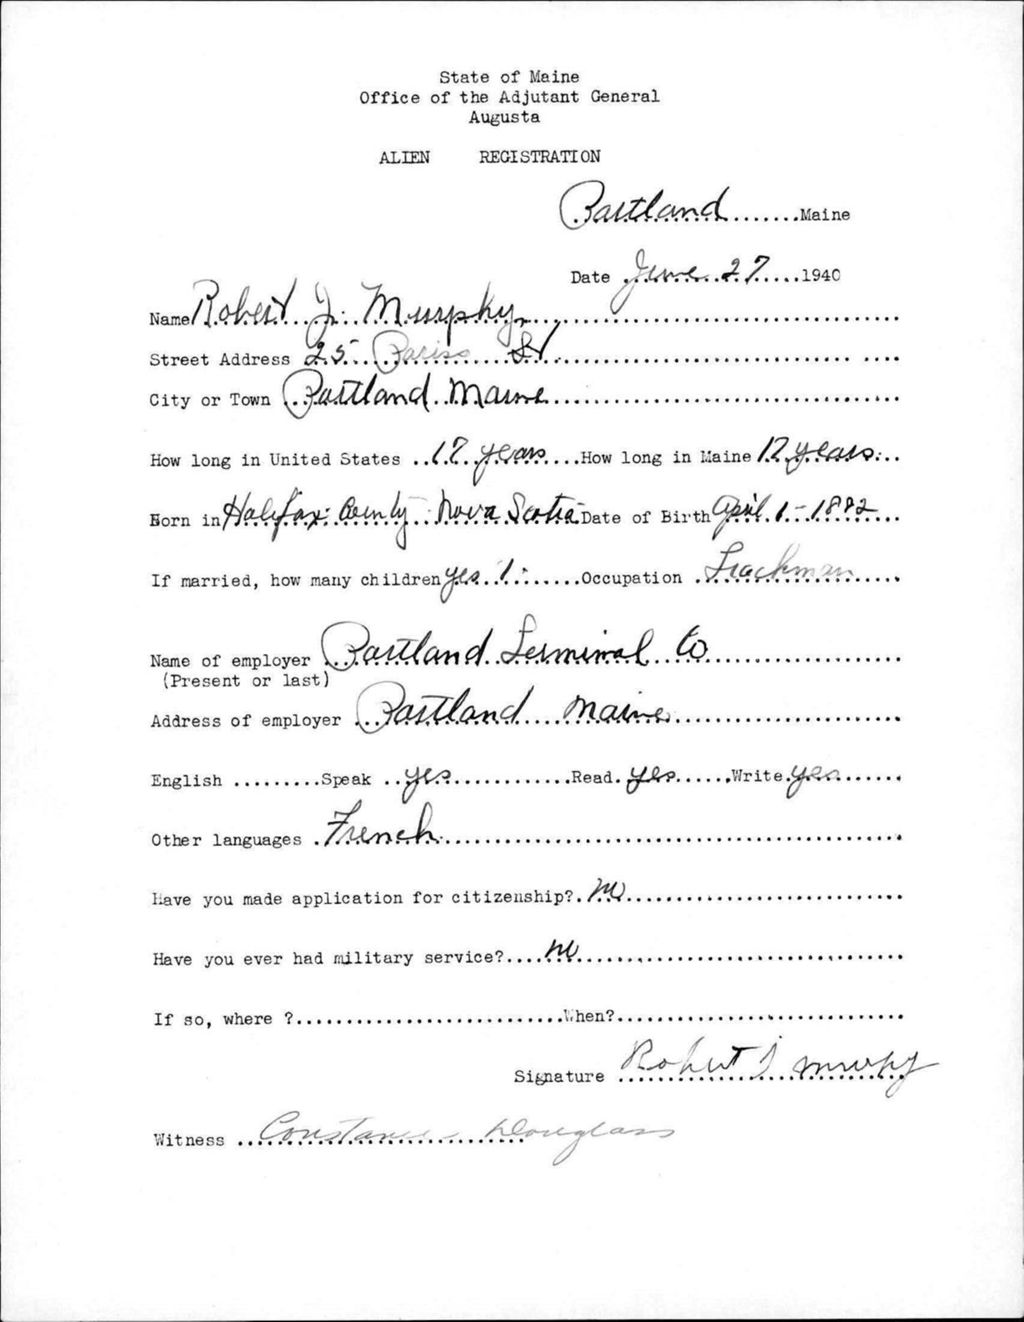 State of Maine
Office of the Adjutant General
Augusta
ALIEN REGISTRATION
Portland........Maine
Date June 27.....1940
Name Robert J. Murphy
Street Address 25 Pariss St
City or Town Portland Maine
How long in United States 17 years....How long in Maine 17 years
Born in Halifax County Nova Scotia Date of Birth April 1 - 1882
If married, how many children yes 1 ......Occupation Trackman
Name of employer Portland Terminal Co
(Present or last)
Address of employer Portland Maine
English .........Speak yes............Read. yes......Write. yes......
Other languages French
Have you made application for citizenship? no
Have you ever had military service? no
If so, where ?...........................When?.............................
Signature Robert J Murphy
Witness Constance Douglass